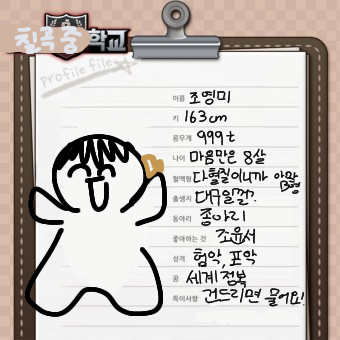 칠곡중학교
profile file
이름 조영미
키 163cm
몸무게 999t
나이 마음만은 8살
혈액형 다혈질이니까 아마 B형
출생지 대구일껄?
동아리 종아리
좋아하는 것 조윤서
성격 험악, 포악
꿈 세계정복
특이사항 건드리면 물어요!